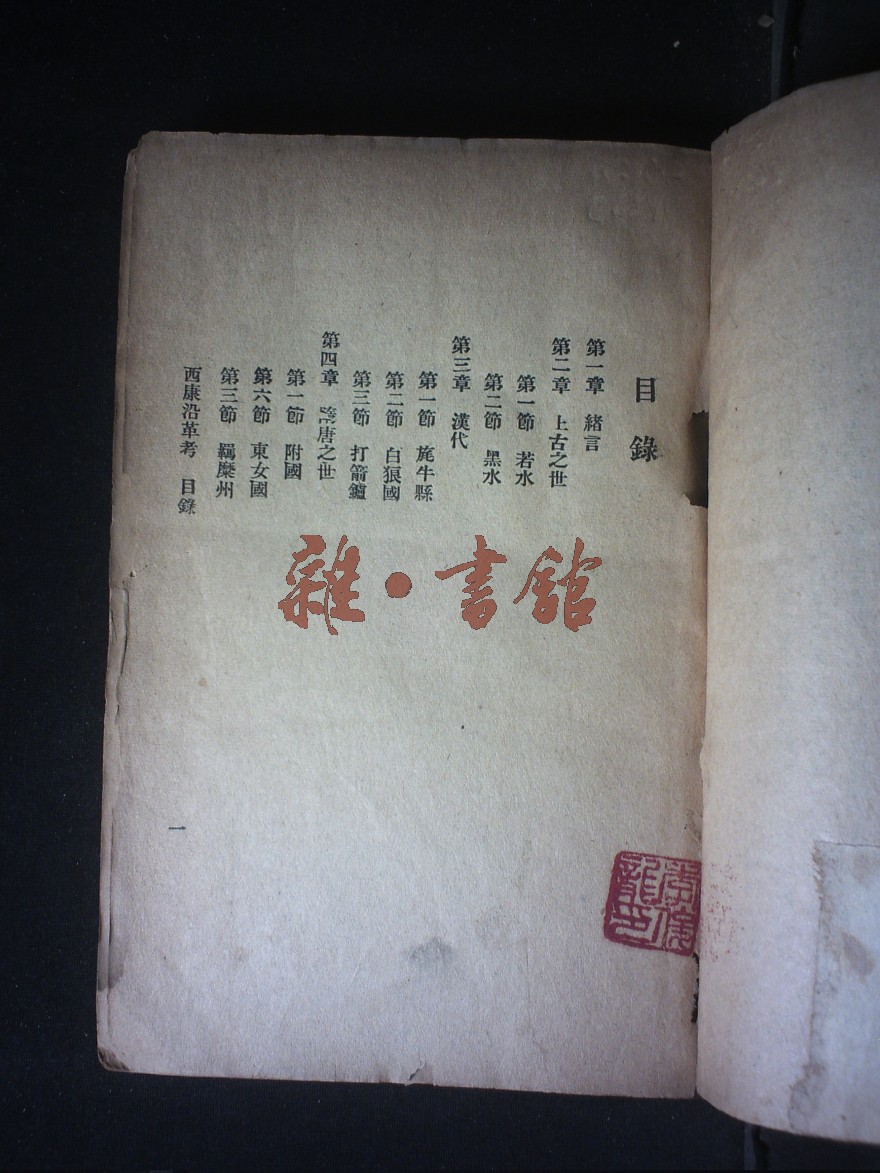 目錄
第一章 緒言
第二章 上古之世
第一節 若水
第二節 黑水
第三章 漢代
第一節 旄牛縣
第二節 白狼國
第三節 打箭鑪
第四章 隋唐之世
第一節 附國
第六節 東女國
第三節 羈縻州
西康沿革考 目錄
一
雜·書館